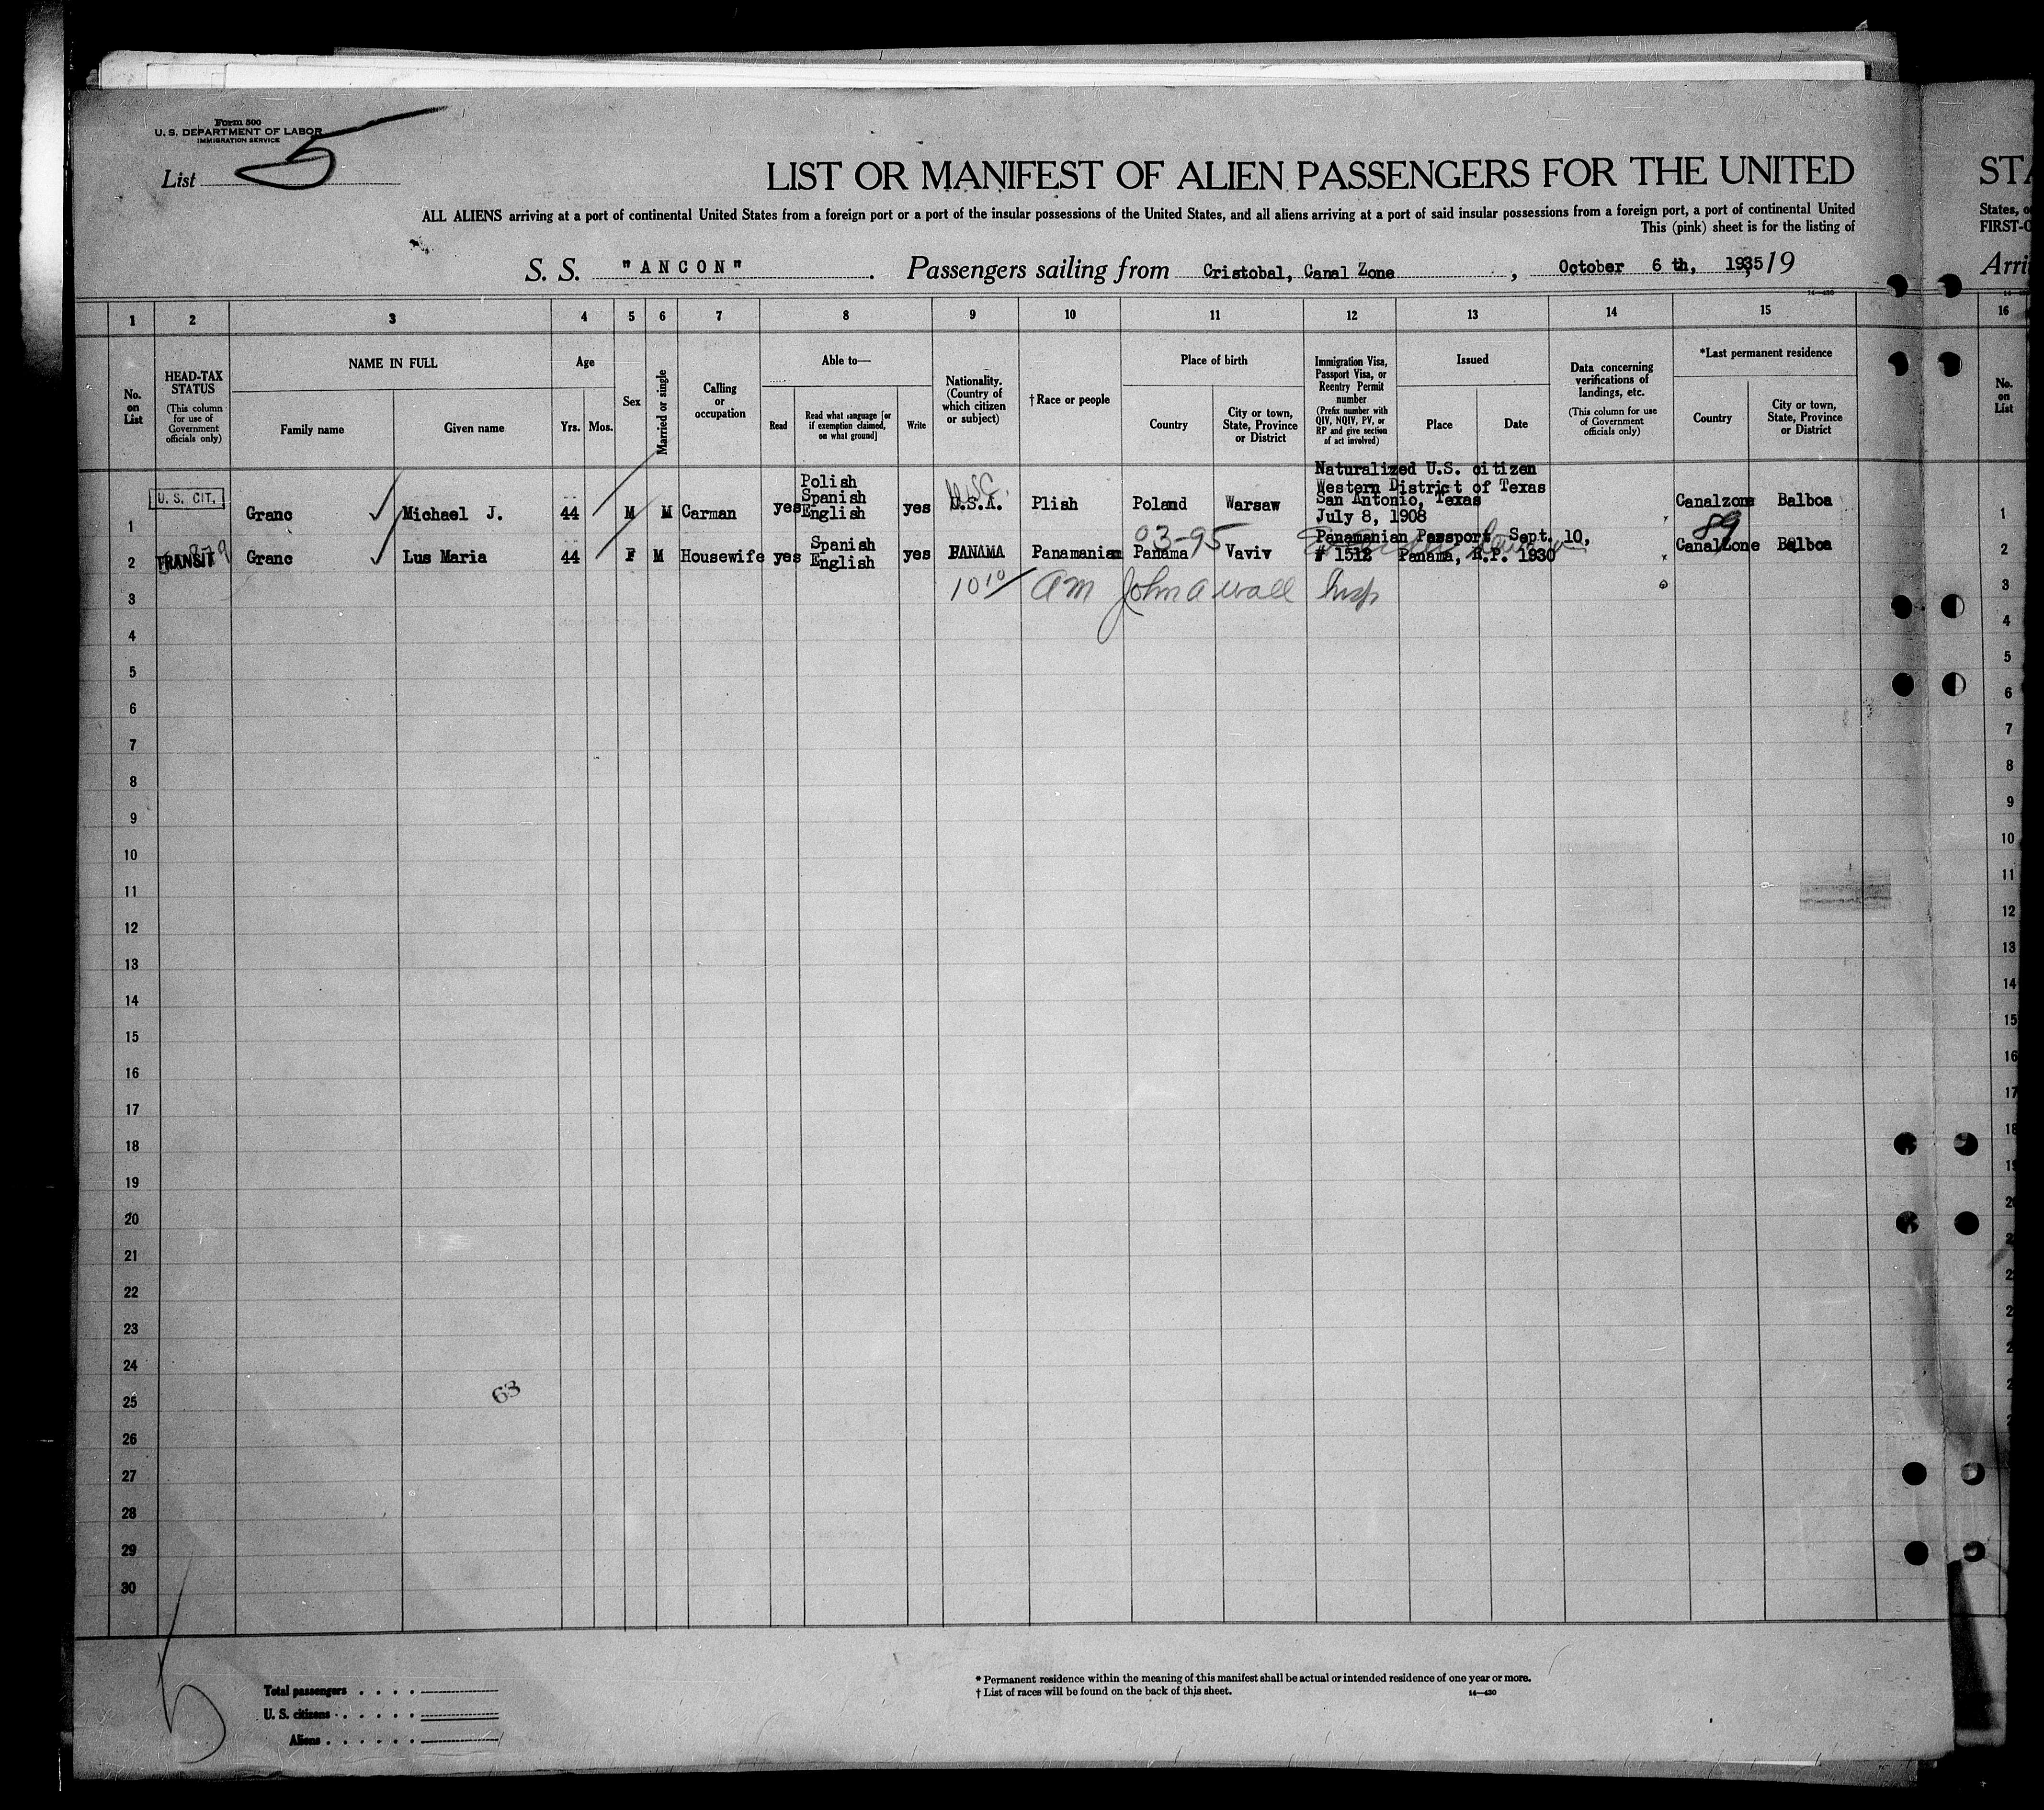 Form 500
U. S. DEPARTMENT OF LABOR
IMMIGRATION SERVICE
List 5
LIST OR MANIFEST OF ALIEN PASSENGERS FOR THE UNITED
STA
ALL ALIENS arriving at a port of continental United States from a foreign port or a port of the insular possessions of the United States, and all aliens arriving at a port of said insular possessions from a foreign port, a port of continental United
States, o
This (pink) sheet is for the listing of
FIRST-C
S. S. "ANCON". Passengers sailing from Cristobal, Canal Zone, October 6 th, 1935, 19
Arri
1 2 3 4 5 6 7 8 9 10 11 12 13 14 15 16
No. on List
HEAD-TAX STATUS
(This column for use of Government officials only)
NAME IN FULL
Family name
Given name
Age
Yrs. Mos.
Sex
Married or single
Calling or occupation
Able to—
Read
Read what language [or if exemption claimed, on what ground]
Write
Nationality. (Country of which citizen or subject)
† Race or people
Place of birth
Country
City or town, State, Province or District
Immigration Visa, Passport Visa, or Reentry Permit number
(Prefix number with QIV, NQIV, PV, or RP and give section of act involved)
Issued
Place
Date
Data concerning verifications of landings, etc.
(This column for use of Government officials only)
*Last permanent residence
Country
City or town, State, Province or District
No. on List
1 U. S. CIT. Granc Michael J. 44 M M Carman yes Polish Spanish English yes U.S.A. Plish Poland Warsaw Naturalized U.S. citizen Western District of Texas San Antonio, Texas July 8, 1908 Canalzone Balboa 1
03-95
89
2 TRANSIT Granc Lus Maria 44 F M Housewife yes Spanish English yes PANAMA Panamanian Panama Vaviv Panamanian Passport Sept. 10, # 1512 Panama, R.P. 1930 CanalZone Balboa 2
3 10 10 am John a wall Insp 3
4 4
5 5
6 6
7 7
8 8
9 9
10 10
11 11
12 12
13 13
14 14
15 15
16 16
17 17
18 18
19 19
20
21
22
23
24
63
25
26
27
28
29
30
Total passengers
U. S. citizens
Aliens
* Permanent residence within the meaning of this manifest shall be actual or intended residence of one year or more.
† List of races will be found on the back of this sheet.
14—430